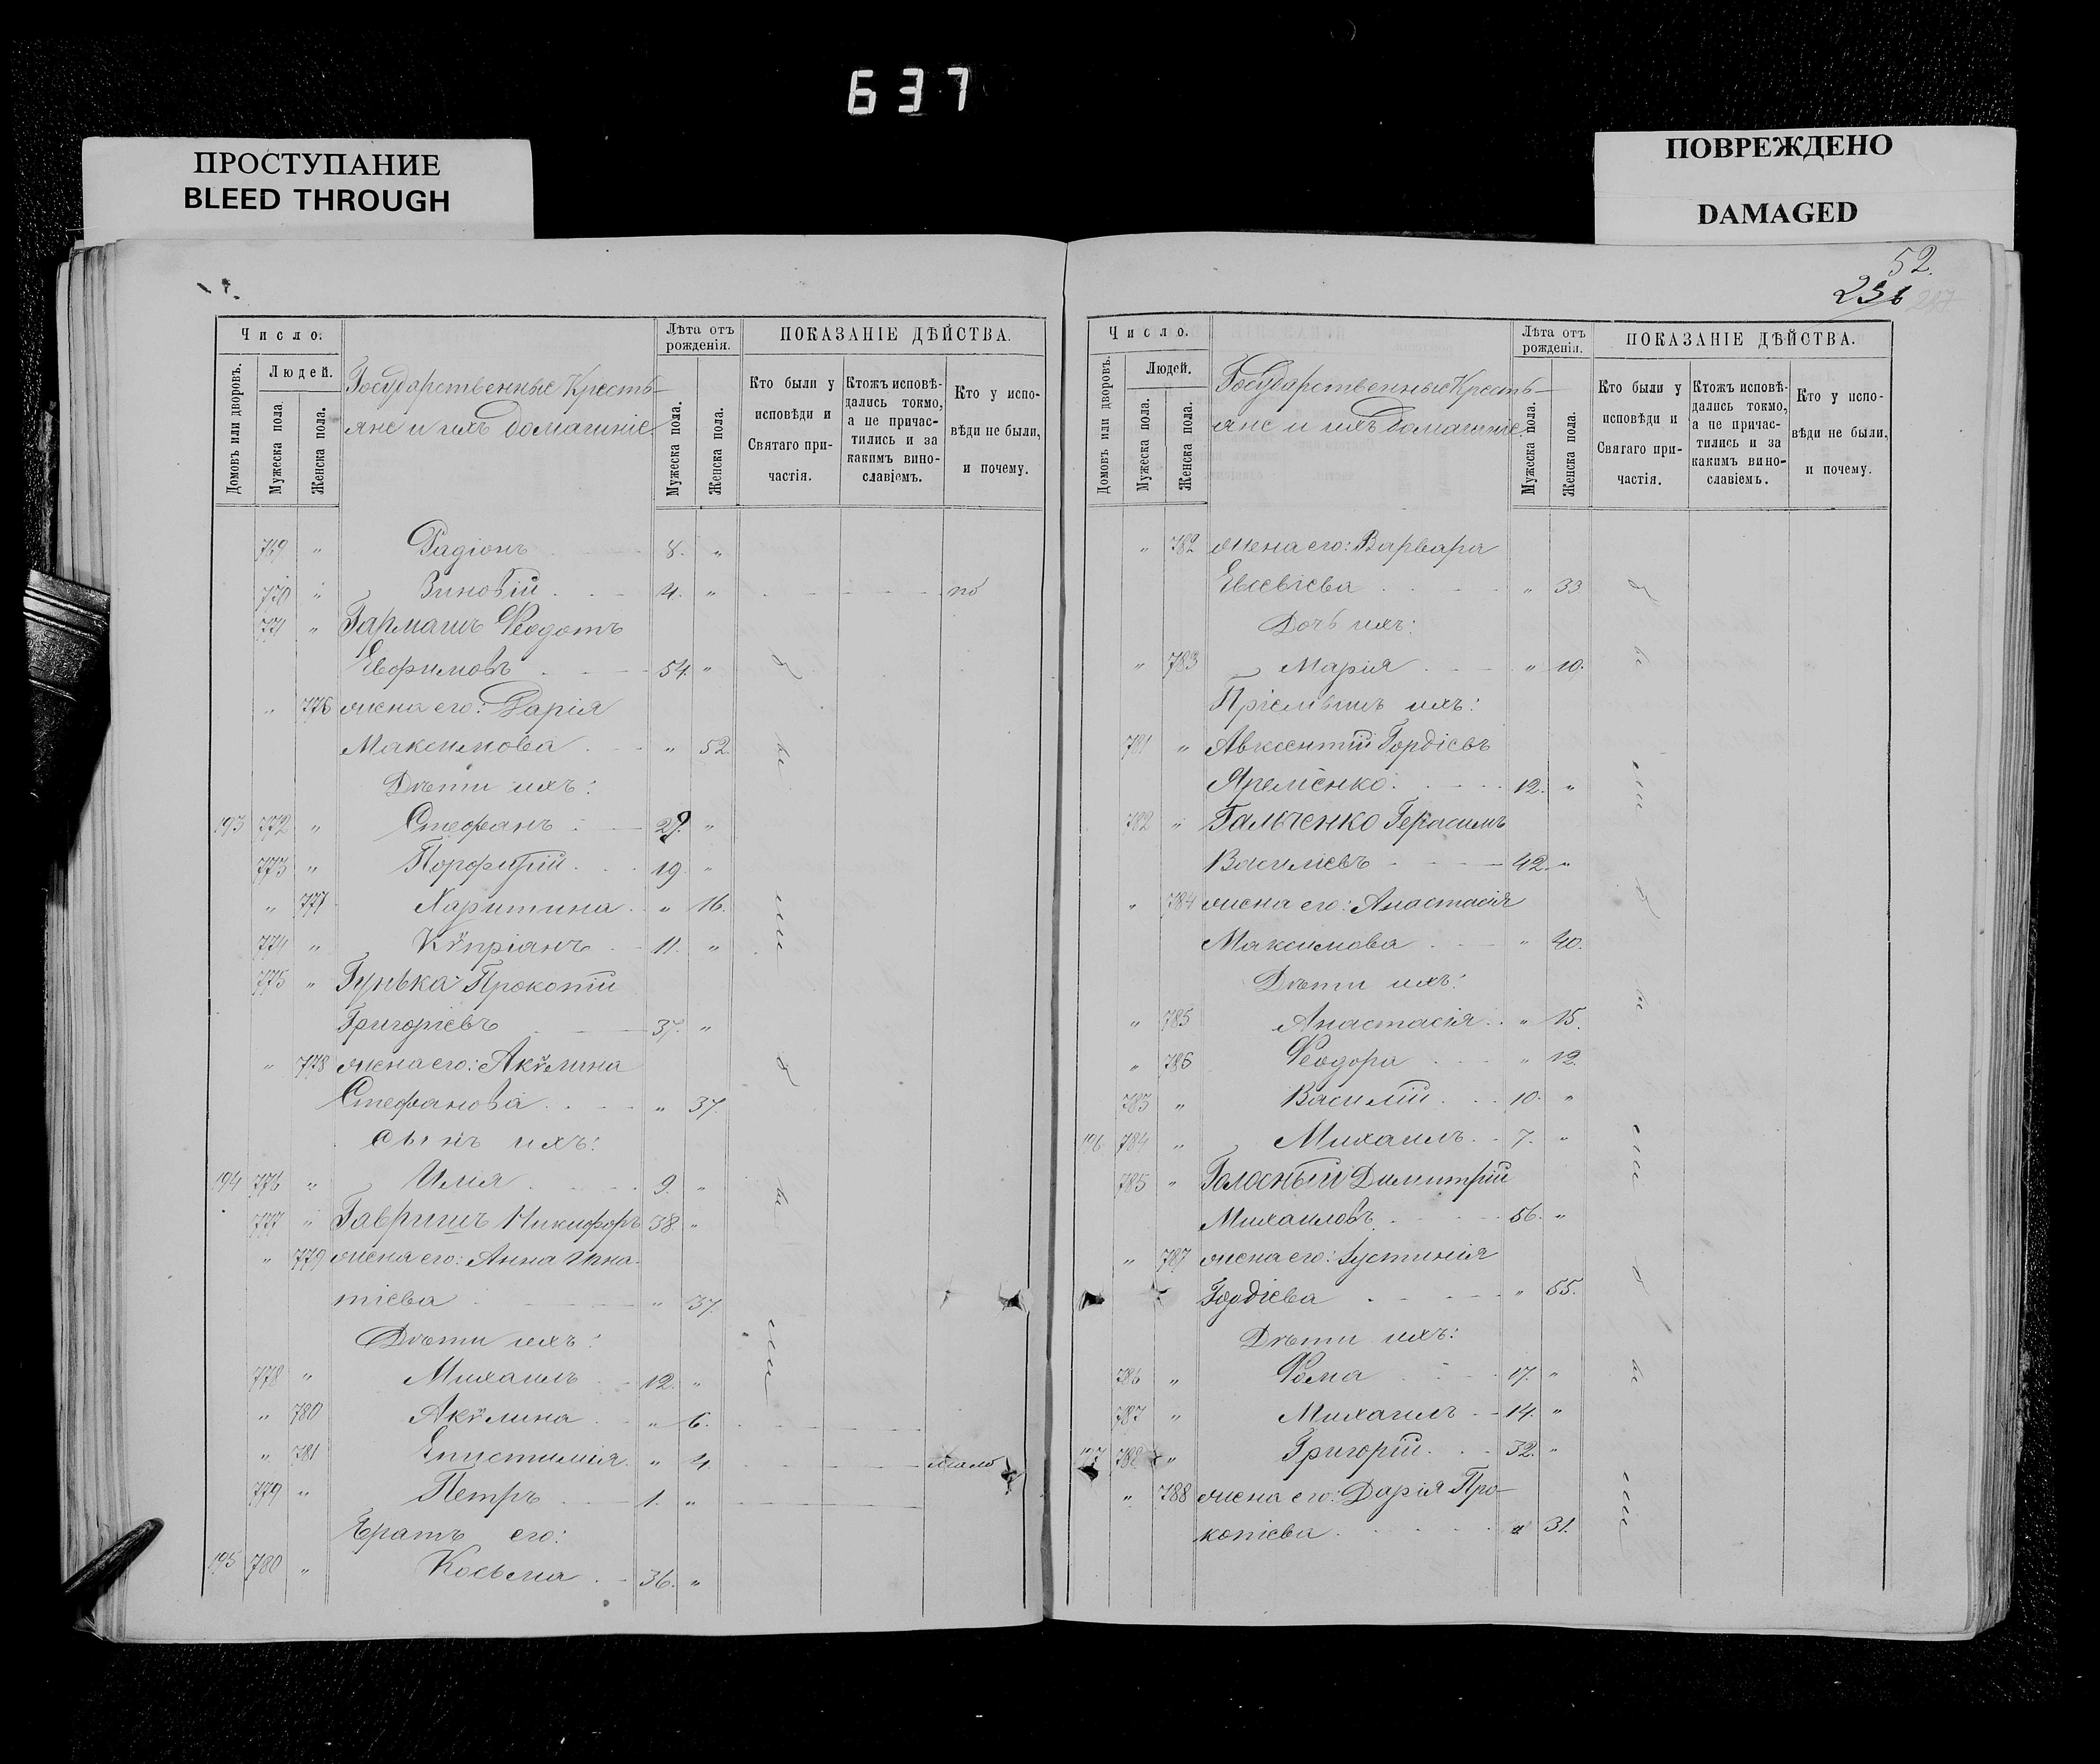 637
ПРОСТУПАНИЕ
BLEED THROUGH
ПОВРЕЖДЕНО
DAMAGED
Число.
Домовъ или дворовъ.
Людей.
Мужеска пола.
Женска пола.
Государственные Кресть-
яне и ихъ домашніе.
Лѣта отъ
рожденія.
Мужеска пола.
Женска пола.
ПОКАЗАНІЕ ДѢЙСТВА.
Кто были у
исповѣди и
Святаго при-
частія.
Ктожъ исповѣ-
дались токмо,
а не причас-
тились и за
какимъ вино-
славіемъ.
Кто у испо-
вѣди не были,
и почему.
769 " Радіонъ 8. "
770 " Зиновій 4. " по
771 " Гармашъ Ѳеодотъ
Евфимовъ 54. "
" 776 жена его: Дарія
Максимова " 52.
Дѣти ихъ:
193 772 " Стефанъ 29. "
773 " Порфирій 19. "
" 777 Харитина " 16.
774 " Кѵпріанъ 11. "
775 " Гунька Прокопій
Григоріевъ 37. "
" 778 жена его: Акѵлина
Стефанова " 37.
Сынъ ихъ:
194 776 " Илія 9. "
777 " Гавришъ Никифоръ 38. "
" 779 жена его: Анна Ипа-
тіева " 37.
Дѣти ихъ:
778 " Михаилъ 12. "
" 780 Акѵлина " 6.
" 781 Епистимія " 4. мало
779 " Петръ 1. "
Братъ его:
195 780 " Косьма 36. "
52.
236 287
Число.
Домовъ или дворовъ.
Людей.
Мужеска пола.
Женска пола.
Государственные Кресть-
яне и ихъ домашніе.
Лѣта отъ
рожденія.
Мужеска пола.
Женска пола.
ПОКАЗАНІЕ ДѢЙСТВА.
Кто были у
исповѣди и
Святаго при-
частія.
Ктожъ исповѣ-
дались токмо,
а не причас-
тились и за
какимъ вино-
славіемъ.
Кто у испо-
вѣди не были,
и почему.
" 782 жена его: Варвара
Евсевіева " 33
Дочь ихъ:
" 783 Марія " 10.
Пріемышъ ихъ:
781 " Авксентій Гордіевъ
Яреміенко 12. "
782 " Гальченко Герасимъ
Василіевъ 42. "
" 784 жена его: Анастасія
Максимова " 40.
Дѣти ихъ:
" 785 Анастасія " 15.
" 786 Ѳеодора " 12.
783 " Василій 10. "
196 784 " Михаилъ 7. "
785 " Голосный Димитрій
Михаиловъ 56. "
" 787 жена его: Іустинія
Гордіева " 55.
Дѣти ихъ:
786 " Ѳома 17. "
787 " Михаилъ 14. "
197 788 " Григорій 32. "
" 788 жена его: Дарія Про-
копіева " 31.